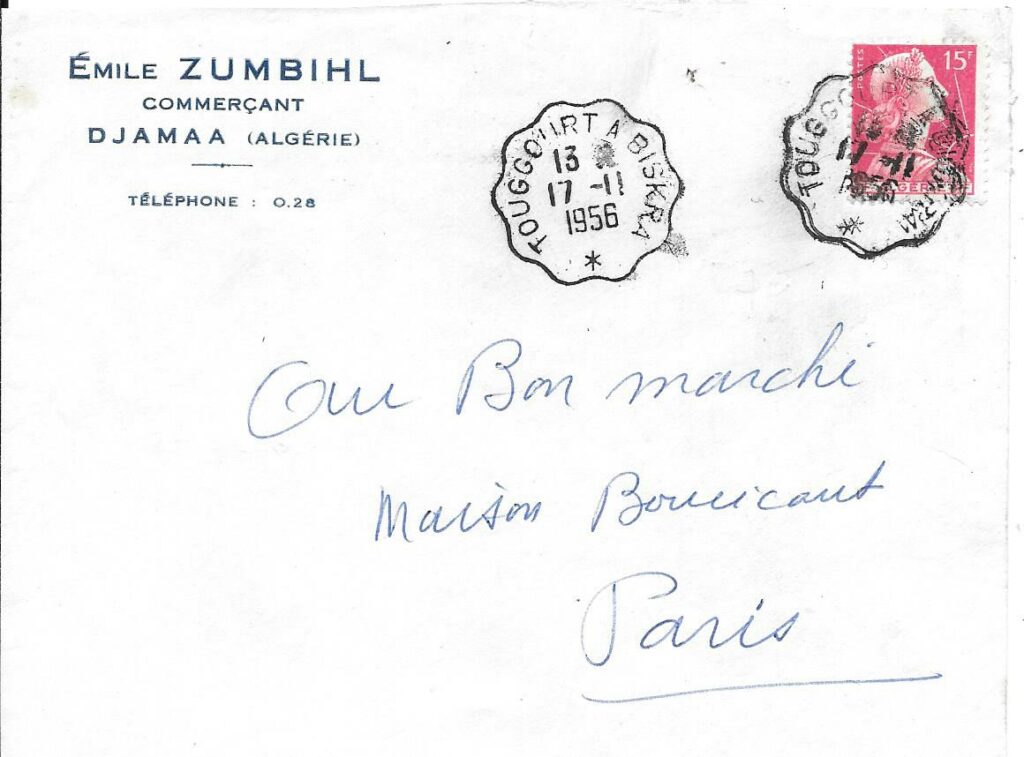 ÉMILE ZUMBIHL
COMMERÇANT
DJAMAA (ALGÉRIE)
TÉLÉPHONE : 0.28
TOUGGOURT A BISKRA
13
17 -11
1956
*
POSTES
15F
17 -11
Au Bon marché
Maison Boucicaut
Paris